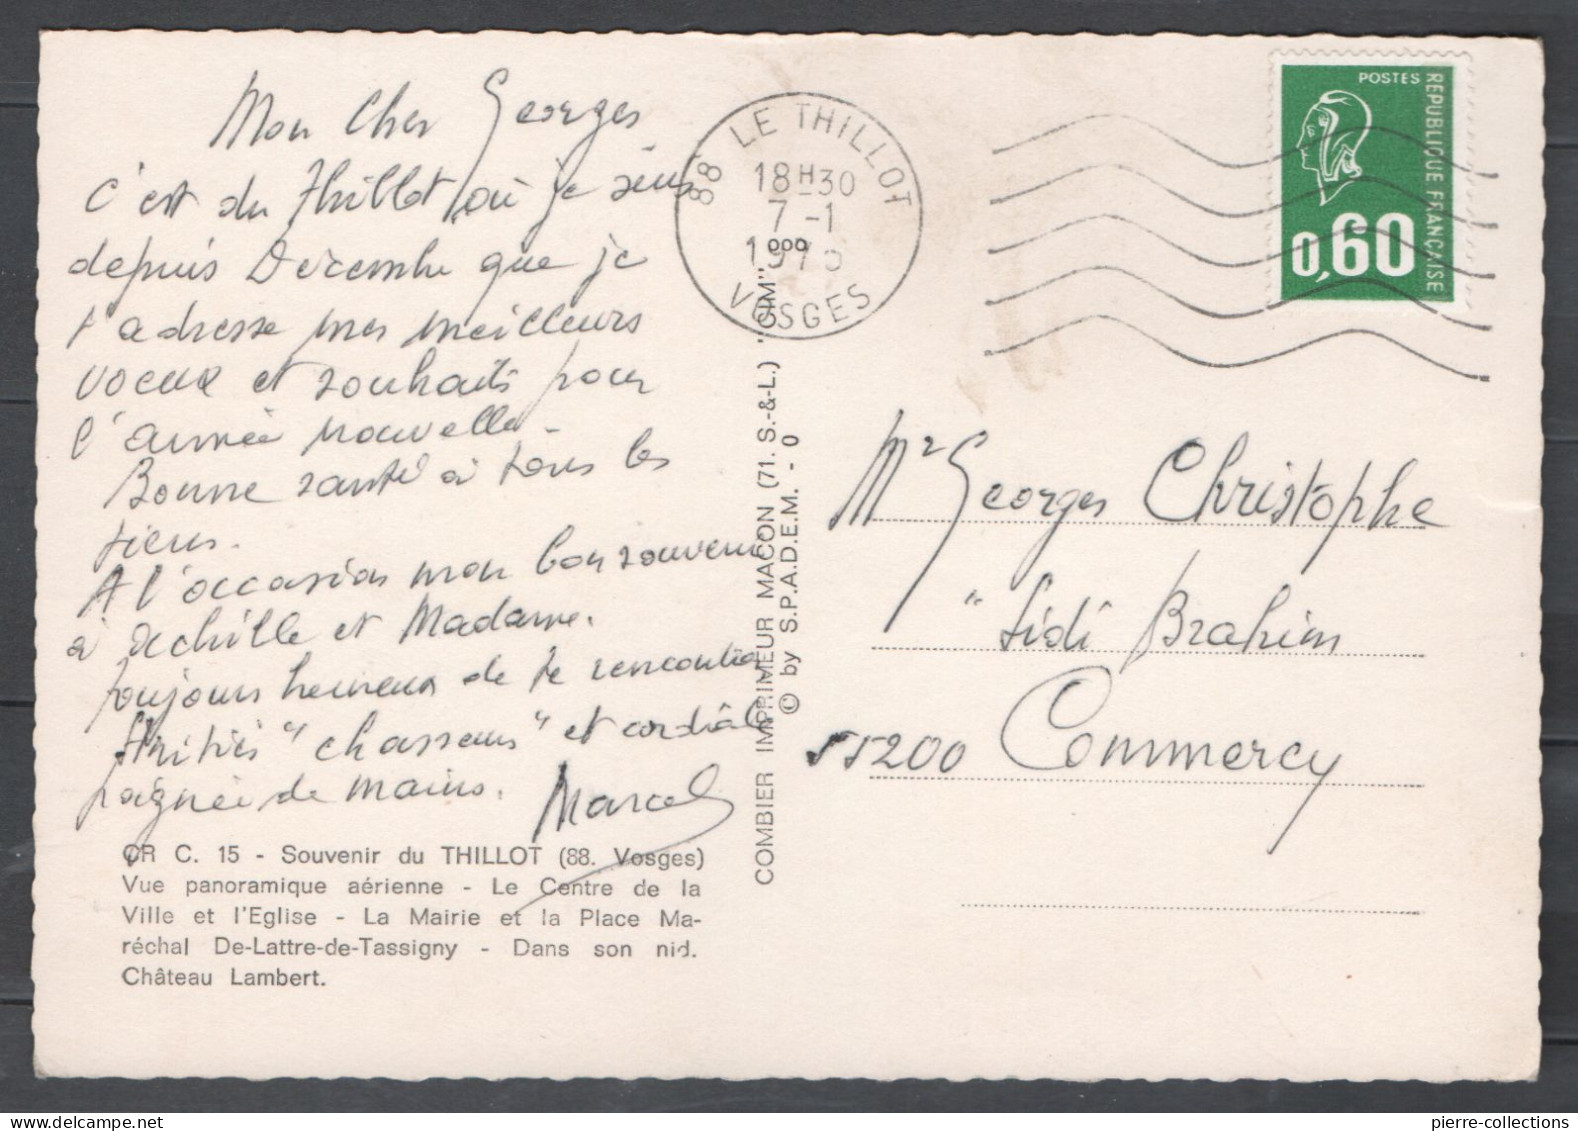 Mon Cher Georges
c'est du Thillot où je suis
depuis Décembre que je
t'adresse mes meilleurs
voeux et souhaits pour
l'année nouvelle -
Bonne santé à tous les
tiens.
A l'occasion mon bon souvenir
à Achille et Madame.
toujours heureux de te rencontrer
Amitiés "chasseurs" et cordiale
poignée de mains.
Marcel
CR C. 15 - Souvenir du THILLOT (88. Vosges)
Vue panoramique aérienne - Le Centre de la
Ville et l'Eglise - La Mairie et la Place Ma-
réchal De-Lattre-de-Tassigny - Dans son nid.
Château Lambert.
COMBIER IMPRIMEUR MACON (71. S.-&-L.) "CIM"
© by S.P.A.D.E.M. - 0
88 LE THILLOT
18H30
7-1
VOSGES
POSTES
REPUBLIQUE FRANÇAISE
0,60
Mr Georges Christophe
"Sidi Brahim
55200 Commercy
pierre-collections